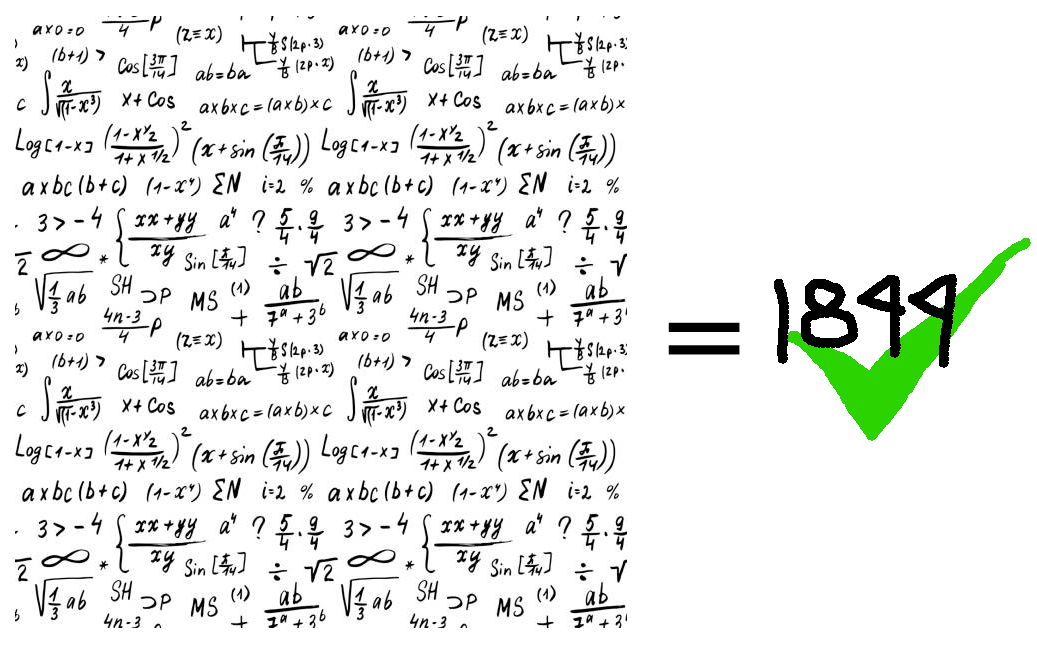 a×0=0 /4 P (Z≡x) a×0=0 /4 P (Z≡x)
(b+1) > y/8 S(2p·3) (b+1) > y/8 S(2p·3)
x) Cos[3π/14] ab=ba y/B (2p·x) Cos[3π/14] ab=ba y/B (2p·
c ∫ x/√(1-x³) x+Cos a×b×c=(a×b)×c ∫ x/√(1-x³) x+Cos a×b×c=(a×b)×
Log[1-x] (1-x½/1+x 1/2)² (x+sin(π/14)) Log[1-x] (1-x½/1+x 1/2)² (x+sin(π/14))
axbc(b+c) (1-x⁴) ΣN i=2 % axbc(b+c) (1-x⁴) ΣN i=2 %
. 3>-4 { xx+yy/xy a⁴ ? 5/4·9/4 3>-4 { xx+yy/xy a⁴ ? 5/4·9/4
2 ∞ * Sin[π/14] ÷ √2 ∞ * Sin[π/14] ÷ √
b √1/3 ab SH ⊃P MS (1) + ab/7ᵃ+3ᵇ √1/3 ab SH ⊃P MS (1) + ab/7ᵃ+3ᵇ
a×0=0 4n-3/4 P (Z≡x) a×0=0 4n-3/4 P (Z≡x)
(b+1) > y/8 S(2p·3) (b+1) > y/8 S(2p·3)
x) Cos[3π/14] ab=ba y/B (2p·x) Cos[3π/14] ab=ba y/B (2p·
c ∫ x/√(1-x³) x+Cos a×b×c=(a×b)×c ∫ x/√(1-x³) x+Cos a×b×c=(a×b)×
Log[1-x] (1-x½/1+x 1/2)² (x+sin(π/14)) Log[1-x] (1-x½/1+x 1/2)² (x+sin(π/14))
axbc(b+c) (1-x⁴) ΣN i=2 % axbc(b+c) (1-x⁴) ΣN i=2 %
. 3>-4 { xx+yy/xy a⁴ ? 5/4·9/4 3>-4 { xx+yy/xy a⁴ ? 5/4·9/4
2 ∞ * Sin[π/14] ÷ √2 ∞ * Sin[π/14] ÷ √
b √1/3 ab SH ⊃P MS (1) + ab/7ᵃ+3ᵇ √1/3 ab SH ⊃P MS (1) + ab/7ᵃ+3ᵇ
4n-3 4n-3
= 1844